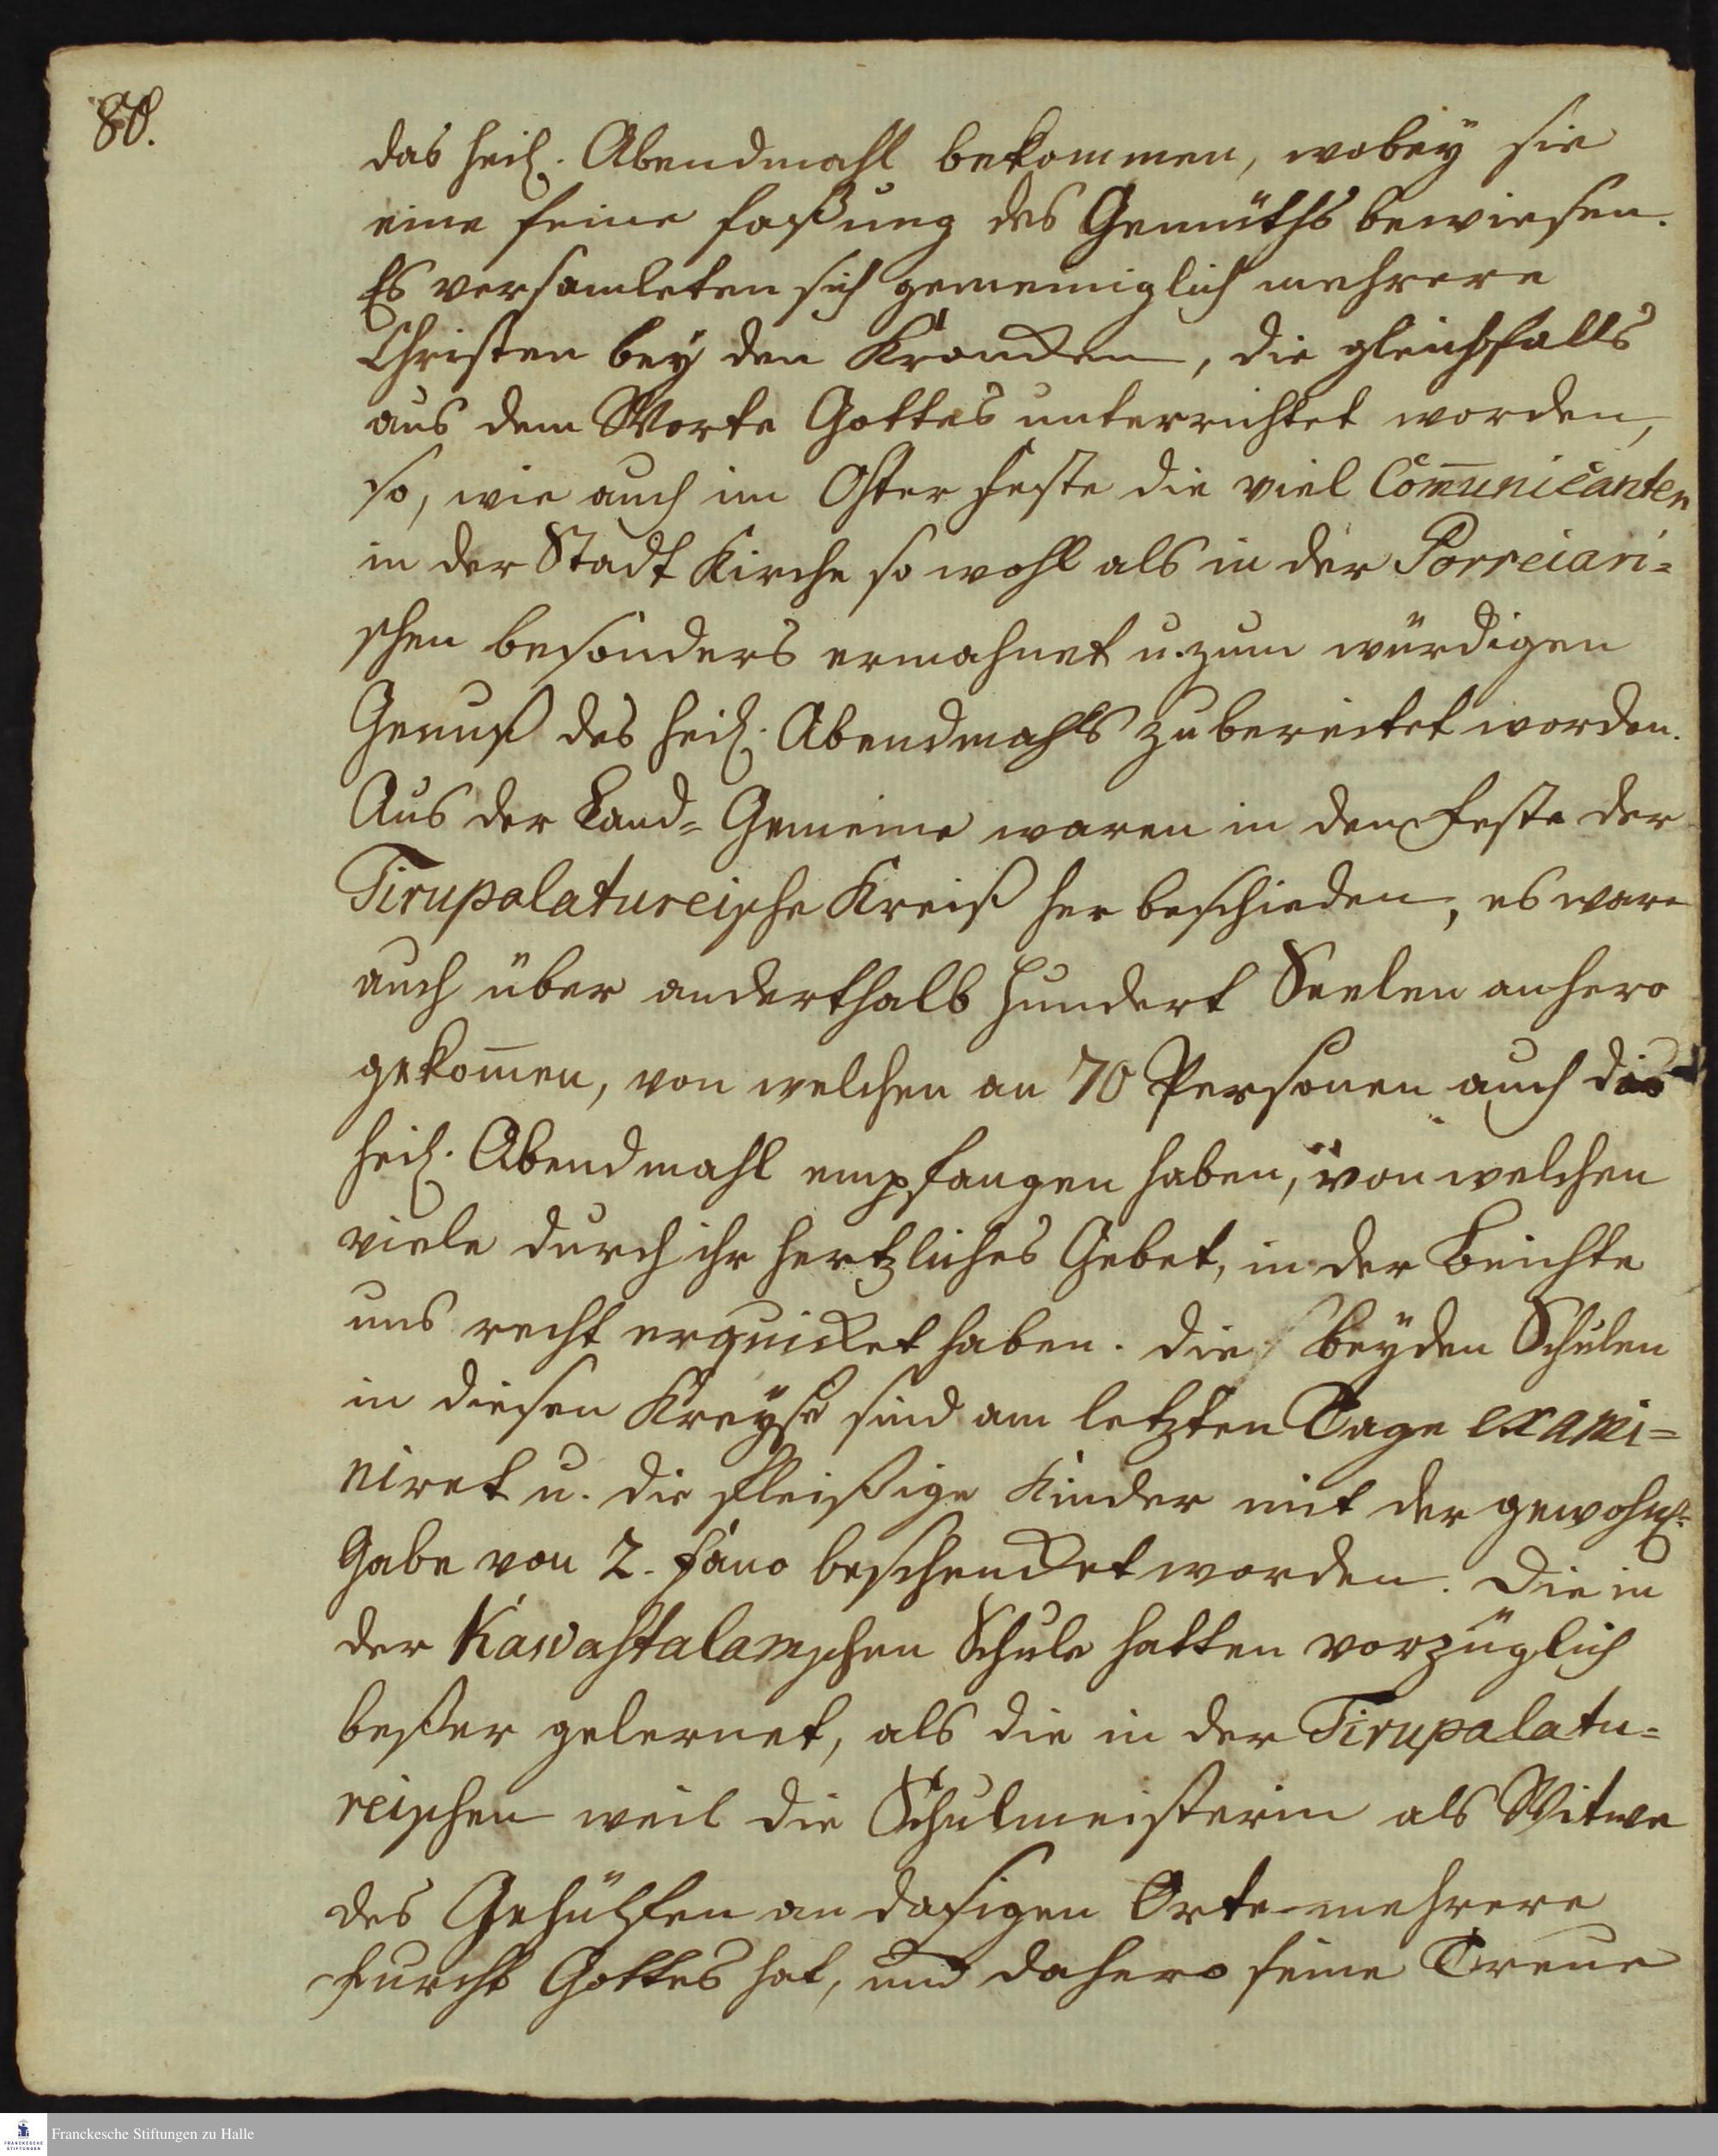 80.
das heil. Abendmahl bekommen, wobey sie
eine feine faßung des Gemüths bewiesen.
Es versamleten sich gemeiniglich mehrere
Christen bey den Krancken, die gleichfalls
aus dem Worte Gottes unterrichtet worden,
so, wie auch im Oster feste die viel Com̄unicanten
in der Stadt Kirche so wohl als in der Porreiari=
schen besonders ermahnet u. zum würdigen
Genuß des heil. Abendmahls zubereitet worden.
Aus der Land= Gemeine waren in dem feste der
Tirupalatureische Kreiß her beschieden, es ware
auch über anderthalb Hundert Seelen anhero
gekom̄en, von welchen an 70 Personen auch das
heil. Abendmahl empfangen haben, von welchen
viele durch ihr hertzliches Gebet, in der Beichte
uns recht erquicket haben. die beyden Schulen
in diesen Kreyse sind am letzten Tage exami=
niret u. die fleißige Kinder mit der gewohnl.
Gabe von 2. fano beschencket worden. Die in
der Kawastalamschen Schule hatten vorzüglich
beßer gelernet, als die in der Tirupalatu=
reischen weil die Schulmeisterin als Witwe
des Gehülfen an dasigen Orte mehrere
furcht Gottes hat, und dahero seine Treue
Franckesche Stiftungen zu Halle
FRANCKESCHE
STIFTUNGEN